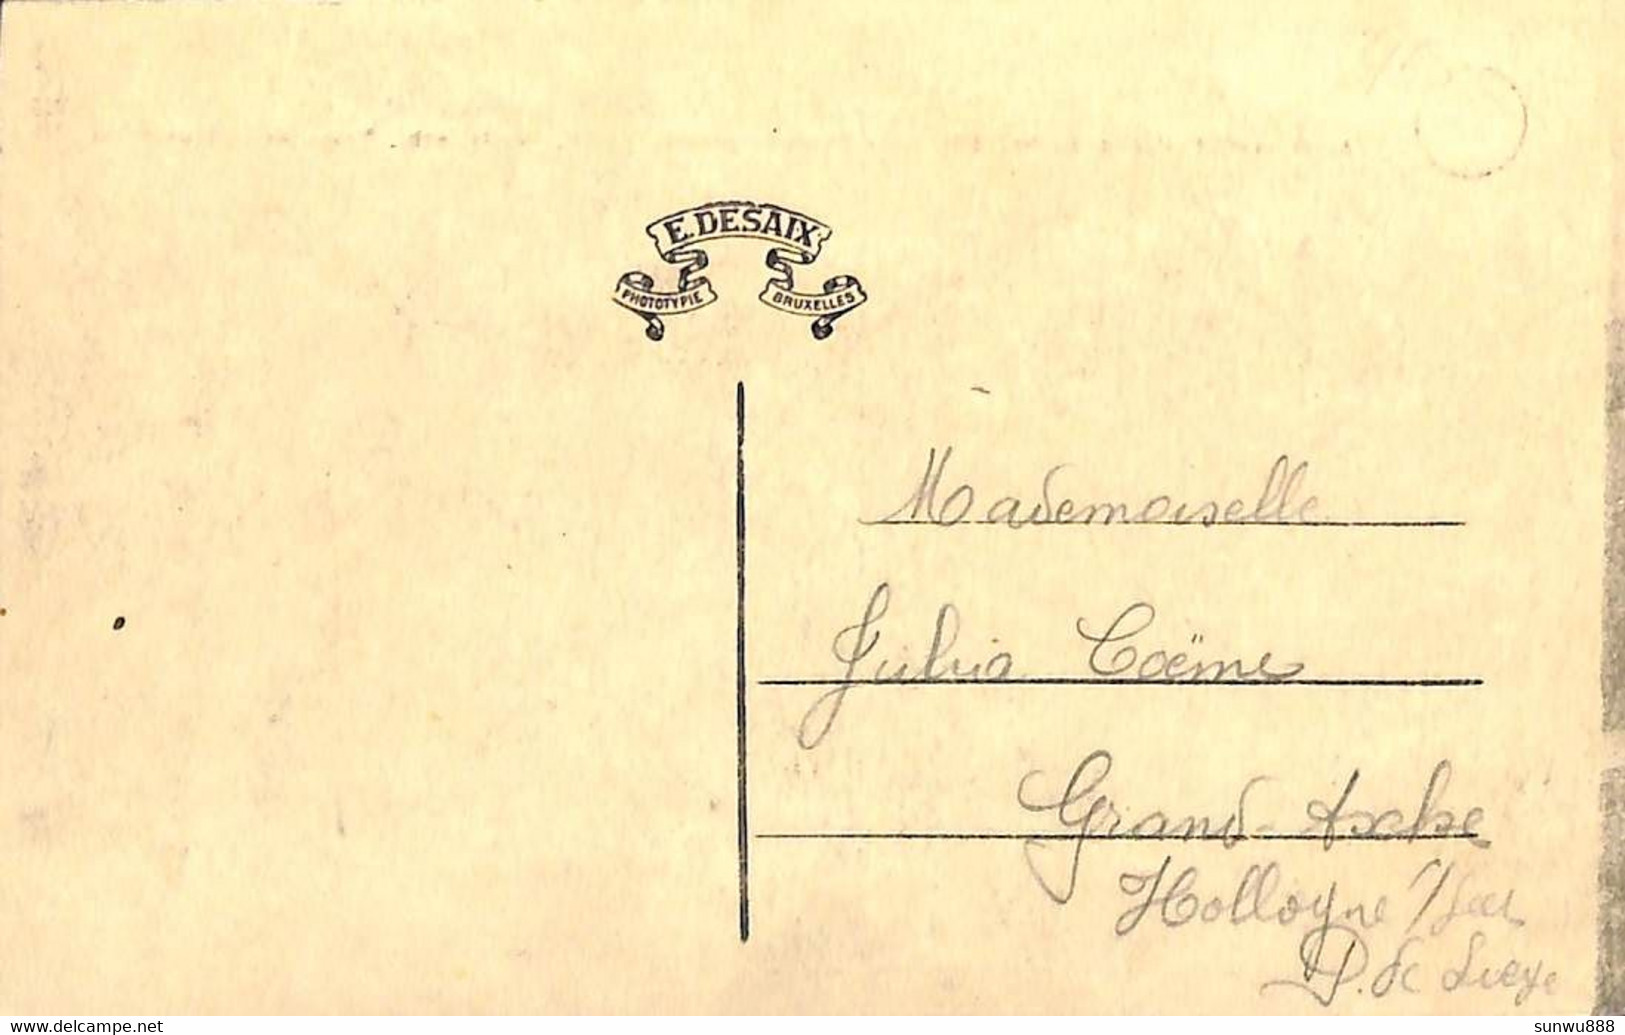 E. DESAIX
PHOTOTYPIE BRUXELLES
Mademoiselle
Julia Coëme
Grand-Axhe
Hollogne s/Geer
P. de Liège
www.delcampe.net
sunwu888